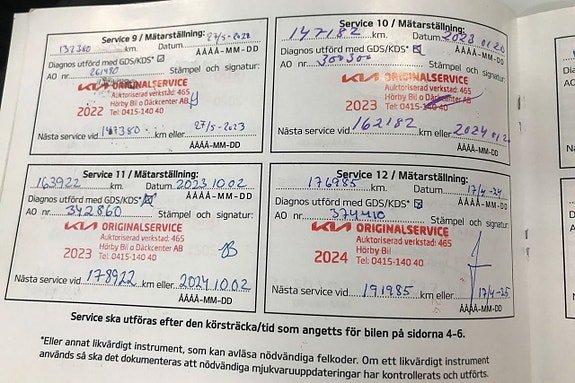 Service 9 / Mätarställning:
132380 km. Datum 27/5-2022
ÅÅÅÅ-MM-DD
Diagnos utförd med GDS/KDS*
AO nr. 261480 Stämpel och signatur:
KIA ORIGINALSERVICE
Auktoriserad verkstad: 465
Hörby Bil o Däckcenter AB
2022 Tel: 0415-140 40
Nästa service vid 147380 km eller 27/5-2023
ÅÅÅÅ-MM-DD
Service 10 / Mätarställning:
147182 km. Datum 2023 01.20
ÅÅÅÅ-MM-DD
Diagnos utförd med GDS/KDS*
AO nr. Stämpel och signatur:
KIA ORIGINALSERVICE
Auktoriserad verkstad: 465
Hörby Bil o Däckcenter AB
2023 Tel: 0415-140 40
Nästa service vid 162182 km eller 2024 01.2
ÅÅÅÅ-MM-DD
Service 11 / Mätarställning:
163922 km. Datum 2023.10.02
ÅÅÅÅ-MM-DD
Diagnos utförd med GDS/KDS*
AO nr. 342860 Stämpel och signatur:
KIA ORIGINALSERVICE
Auktoriserad verkstad: 465
Hörby Bil o Däckcenter AB
2023 Tel: 0415-140 40
Nästa service vid 178922 km eller 2024.10.02
ÅÅÅÅ-MM-DD
Service 12 / Mätarställning:
176985 km. Datum 17/4-24
ÅÅÅÅ-MM-DD
Diagnos utförd med GDS/KDS*
AO nr. 374410 Stämpel och signatur:
KIA ORIGINALSERVICE
Auktoriserad verkstad: 465
Hörby Bil o Däckcenter AB
2024 Tel: 0415-140 40
Nästa service vid 191985 km eller 17/4-25
ÅÅÅÅ-MM-DD
Service ska utföras efter den körsträcka/tid som angetts för bilen på sidorna 4-6.
*Eller annat likvärdigt instrument, som kan avläsa nödvändiga felkoder. Om ett likvärdigt instrument
används så ska det dokumenteras att nödvändiga mjukvaruuppdateringar har kontrollerats och utförts.